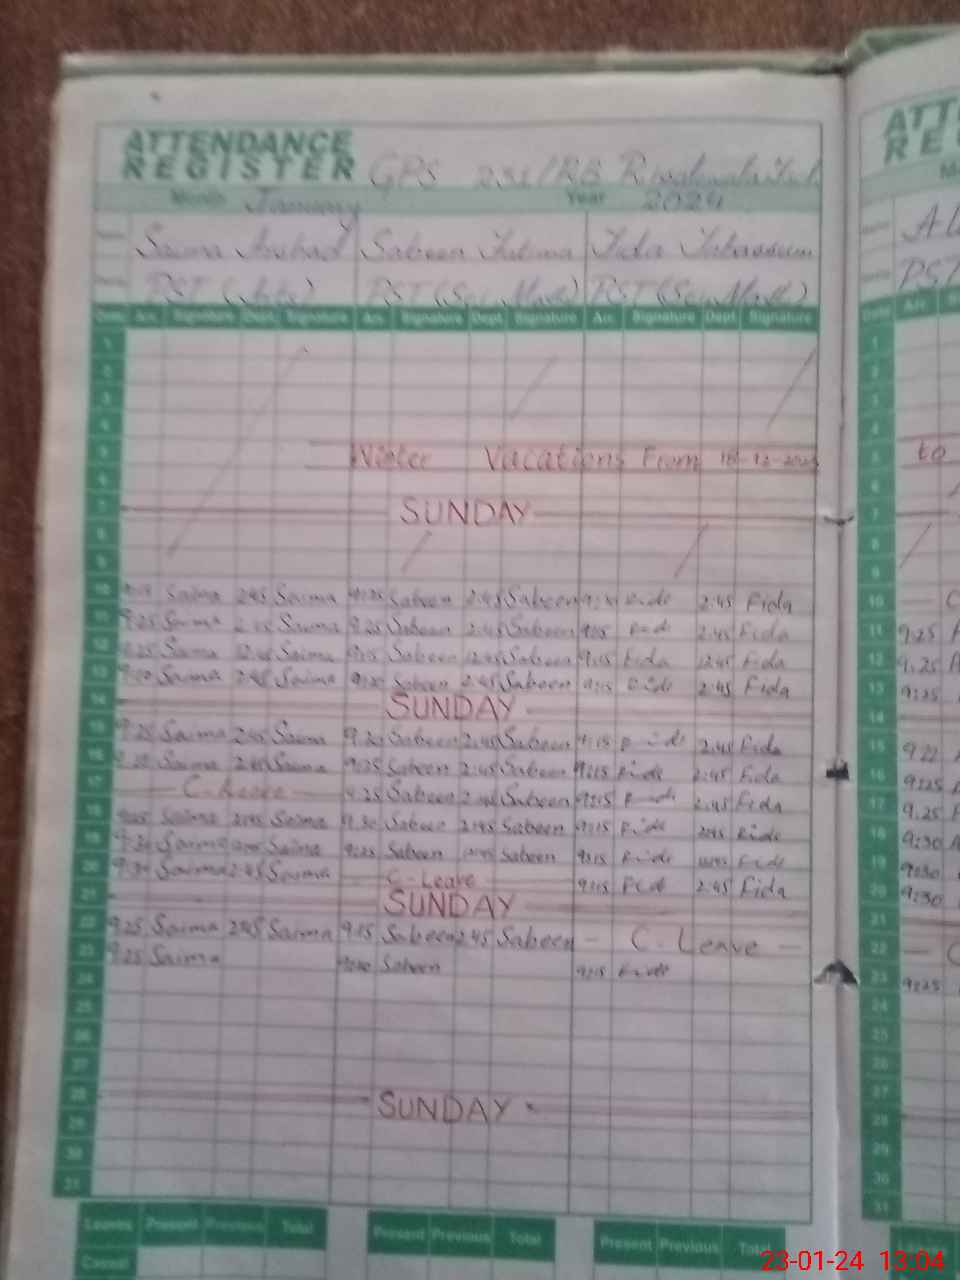 ATTENDANCE
REGISTER GPS 231/RB
Month January Year 2024
Saima Arshad Sabeen Fatima Fida Tabassum
PST (Arts) PST (Sci, Math) PST (Sci, Math)
Date Arr. Signature Dept. Signature Arr. Signature Dept. Signature Arr. Signature Dept. Signature
1
2
3
4
5 Winter Vacations From 18-12-2023 to
6
7 SUNDAY
8
9
10 Saima 2:45 Saima 9:25 Sabeen 2:45 Sabeen Fida 2:45 Fida
11 9:25 Saima 2:45 Saima 9:25 Sabeen 2:45 Sabeen 9:15 Fida 2:45 Fida 9:25
12 9:25 Saima 12:45 Saima 9:15 Sabeen 12:45 Sabeen 9:15 Fida 12:45 Fida 9:25
13 Saima 2:45 Saima 9:20 Sabeen 2:45 Sabeen 9:15 Fida 2:45 Fida 9:25
14 SUNDAY
15 9:25 Saima 2:45 Saima 9:20 Sabeen 2:45 Sabeen 9:15 Fida 2:45 Fida 9:22
16 Saima 2:45 Saima 9:25 Sabeen 2:45 Sabeen 9:15 Fida 2:45 Fida 9:25
17 C.Leave 9:25 Sabeen 2:45 Sabeen 9:15 Fida 2:45 Fida 9:25
18 9:25 Saima 2:45 Saima 9:30 Sabeen 2:45 Sabeen 9:15 Fida 2:45 Fida 9:30
19 9:30 Saima Saima 9:25 Sabeen 12:45 Sabeen 9:15 Fida 12:45 Fida 9:30
20 9:30 Saima 2:45 Saima C-Leave 9:15 Fida 2:45 Fida 9:30
21 SUNDAY
22 9:25 Saima 2:45 Saima 9:15 Sabeen 2:45 Sabeen C. Leave
23 9:25 Saima Sabeen 9:15 Fida 9:25
24
25
26
27
28 SUNDAY
29
30
31
Leaves Present Previous Total Present Previous Total Present Previous Total
Casual
23-01-24 13:04